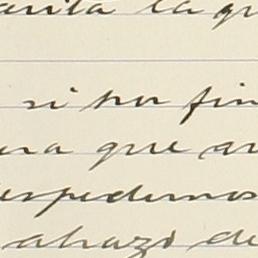 arita la qu
si por fin
ara que an
espedimos
abrazo de